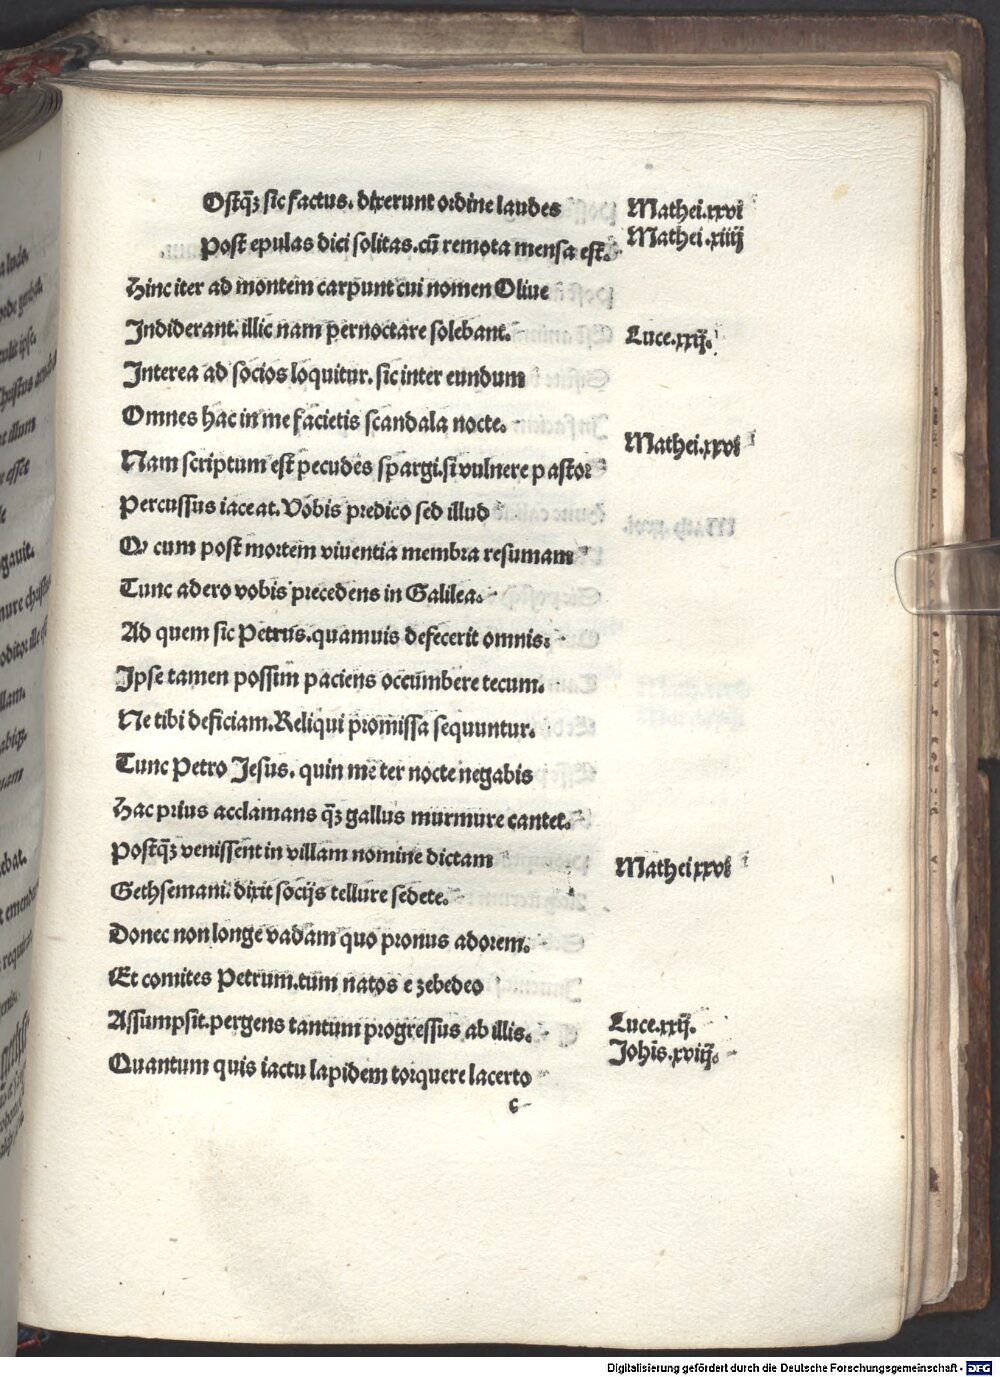 Ostqꝫ sic factus. dixerunt ordine laudes
Mathei.xxvi
Post epulas dici solitas.cū remota mensa est.
Mathei.xiiij
Hinc iter ad montem carpunt cui nomen Oliue
Indiderant. illic nam pernoctare solebant.
Luce.xxij.
Interea ad socios loquitur. sic inter eundum
Omnes hac in me facietis scandala nocte.
Mathei.xxvi
Nam scriptum est pecudes spargi.si vulnere pastor
Percussus iaceat. Vobis predico sed illud
Qv cum post mortem viuentia membra resumam
Tunc adero vobis precedens in Galilea.
Ad quem sic Petrus.quamuis defecerit omnis:
Ipse tamen possim paciens occumbere tecum.
Ne tibi deficiam.Reliqui promissa sequuntur.
Tunc Petro Jesus. quin me ter nocte negabis
Hac prius acclamans qꝫ gallus murmure cantet.
Postqꝫ venissent in villam nomine dictam
Mathei xxvi
Gethsemani. dixit socijs tellure sedete.
Donec non longe vadam quo pronus adorem.
Et comites Petrum.tum natos e zebedeo
Assumpsit.pergens tantum progressus ab illis.
Luce.xxij.
Johīs.xviij.
Quantum quis iactu lapidem torquere lacerto
c
Digitalisierung gefördert durch die Deutsche Forschungsgemeinschaft - DFG